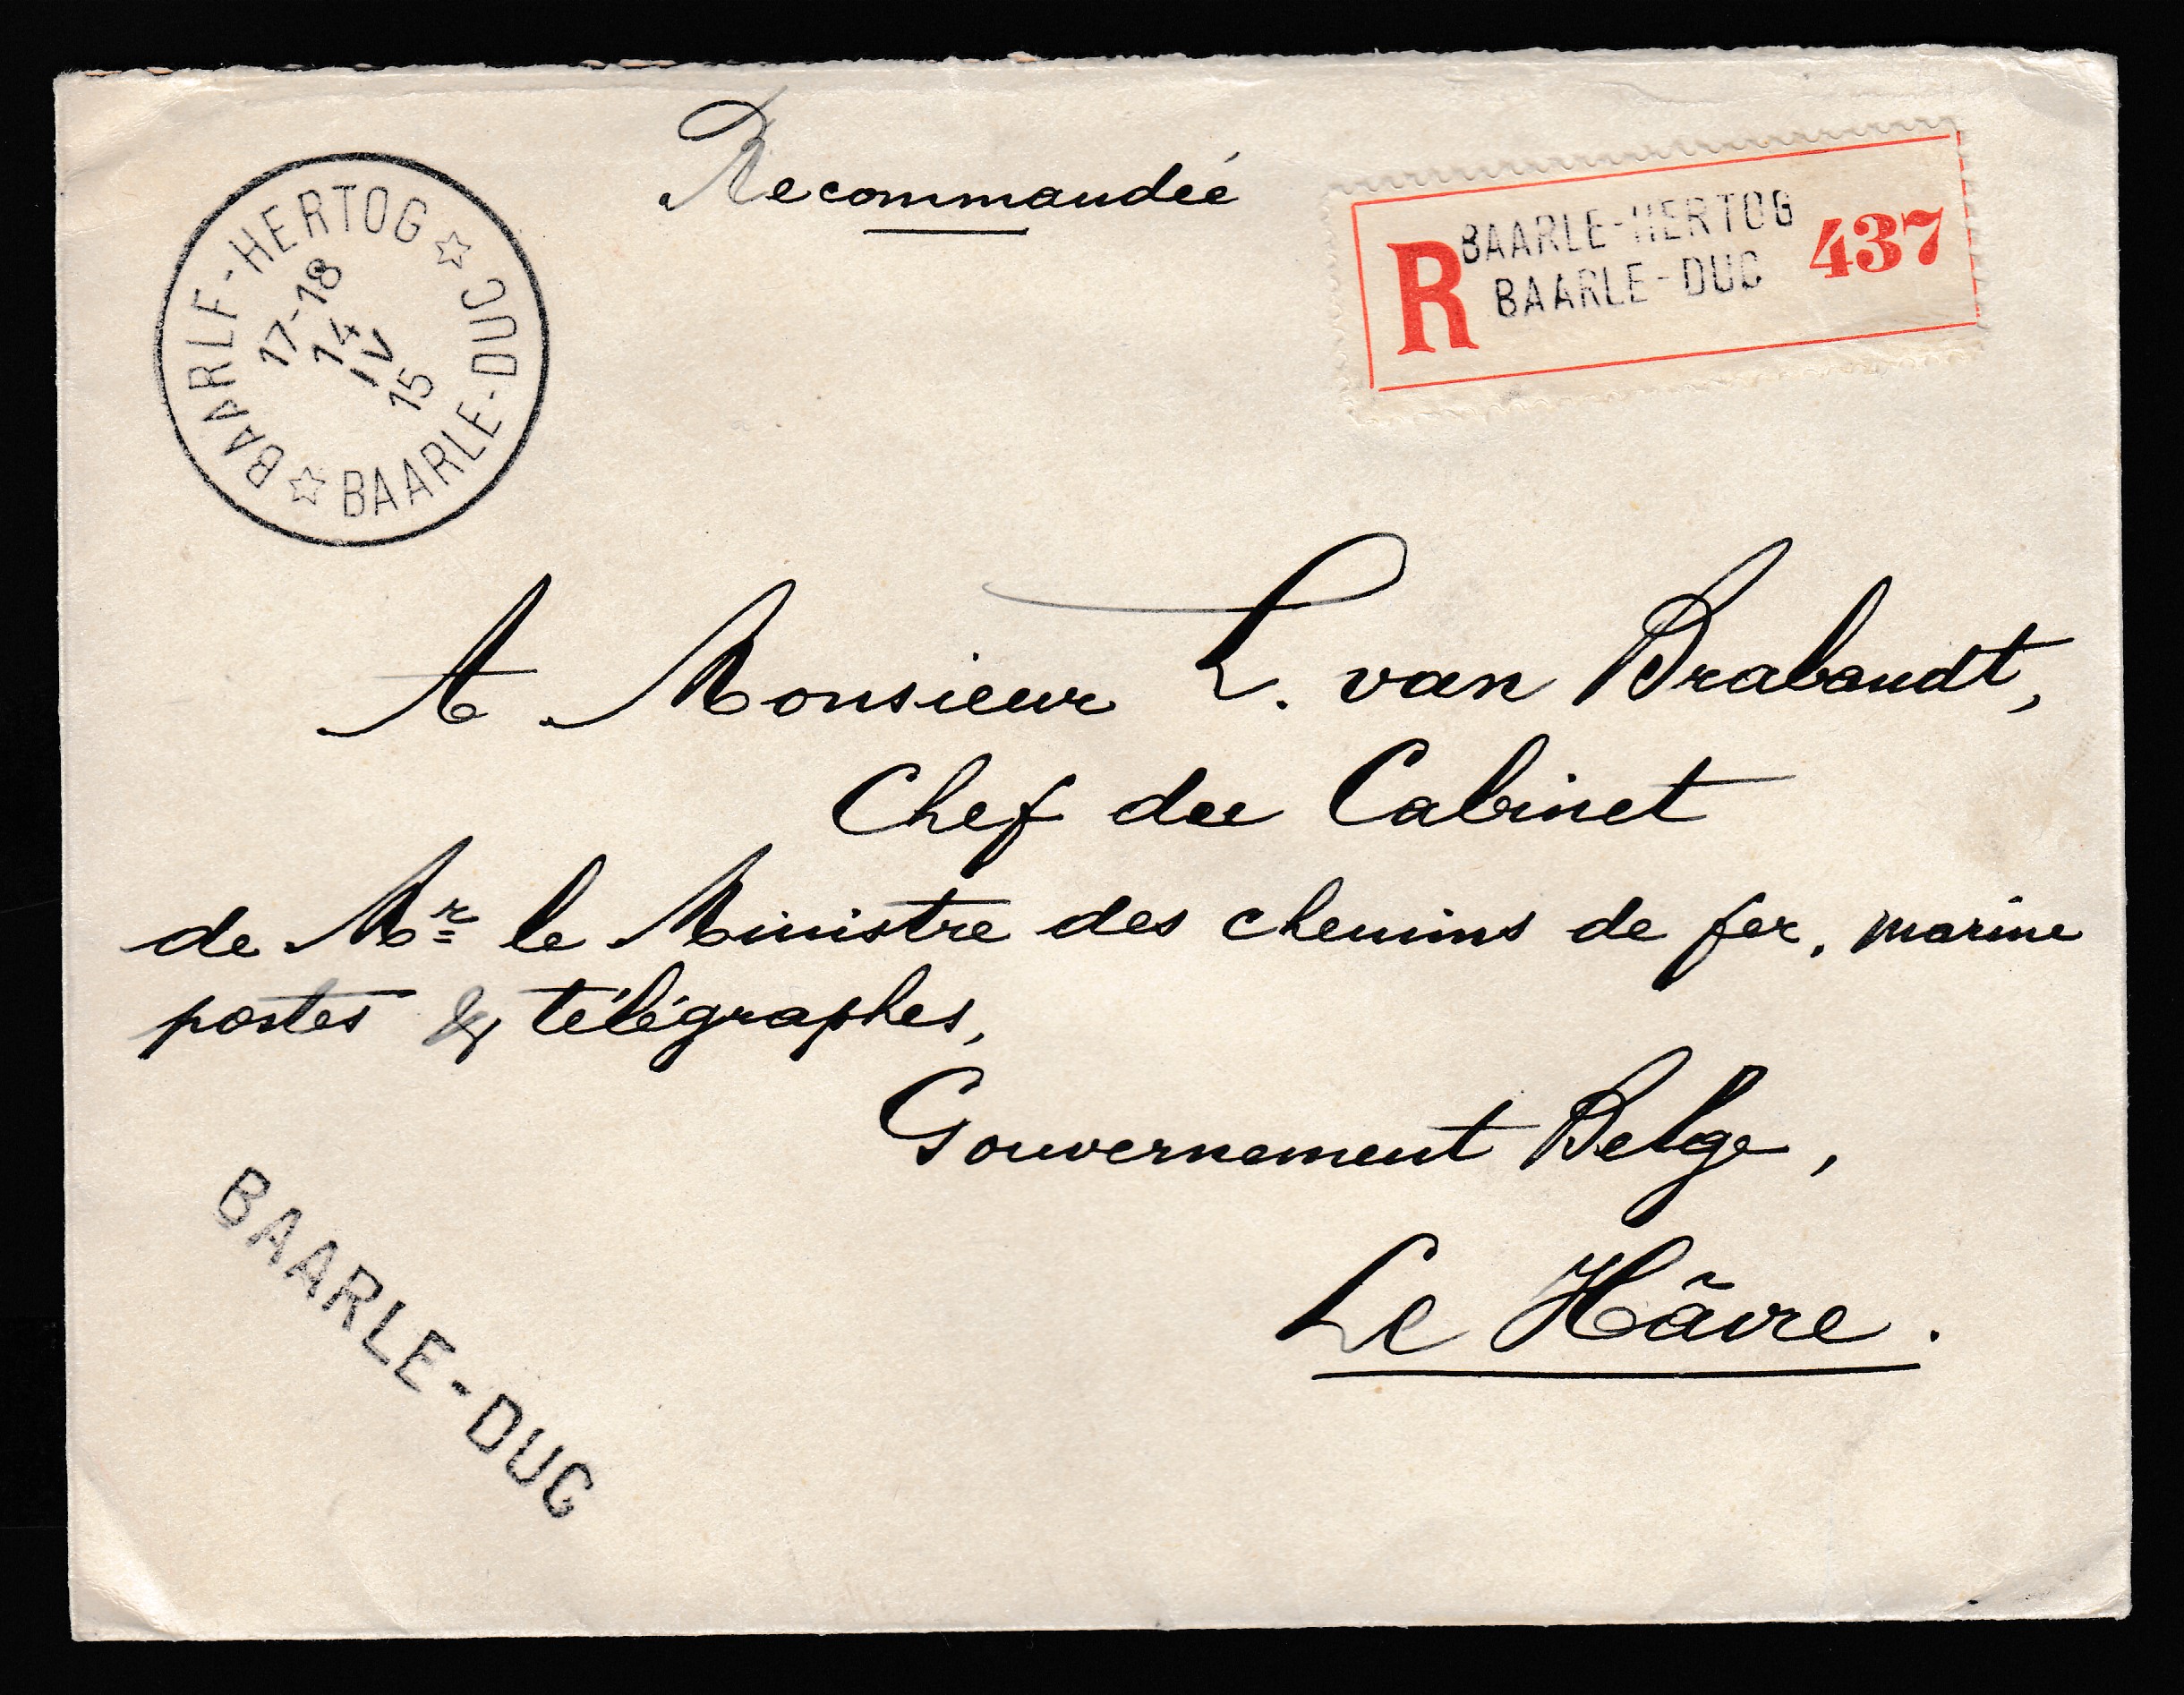 Recommandée
BAARLE-HERTOG
17-18
14
IV
15
BAARLE-DUC
R BAARLE-HERTOG 437
BAARLE-DUC
A Monsieur L. van Brabandt,
Chef du Cabinet
de Mr le Ministre des chemins de fer, marine
postes & télégraphes,
Gouvernement Belge,
Le Hâvre.
BAARLE-DUC